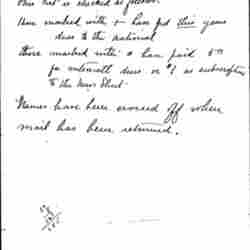 This list is checked as follows.
Those marked with + has paid this years
dues to the national
Those marked with o has paid 5 00
for national dues or $1 as subscription
to the News Sheet.
Names have been crossed off when
mail has been returned.